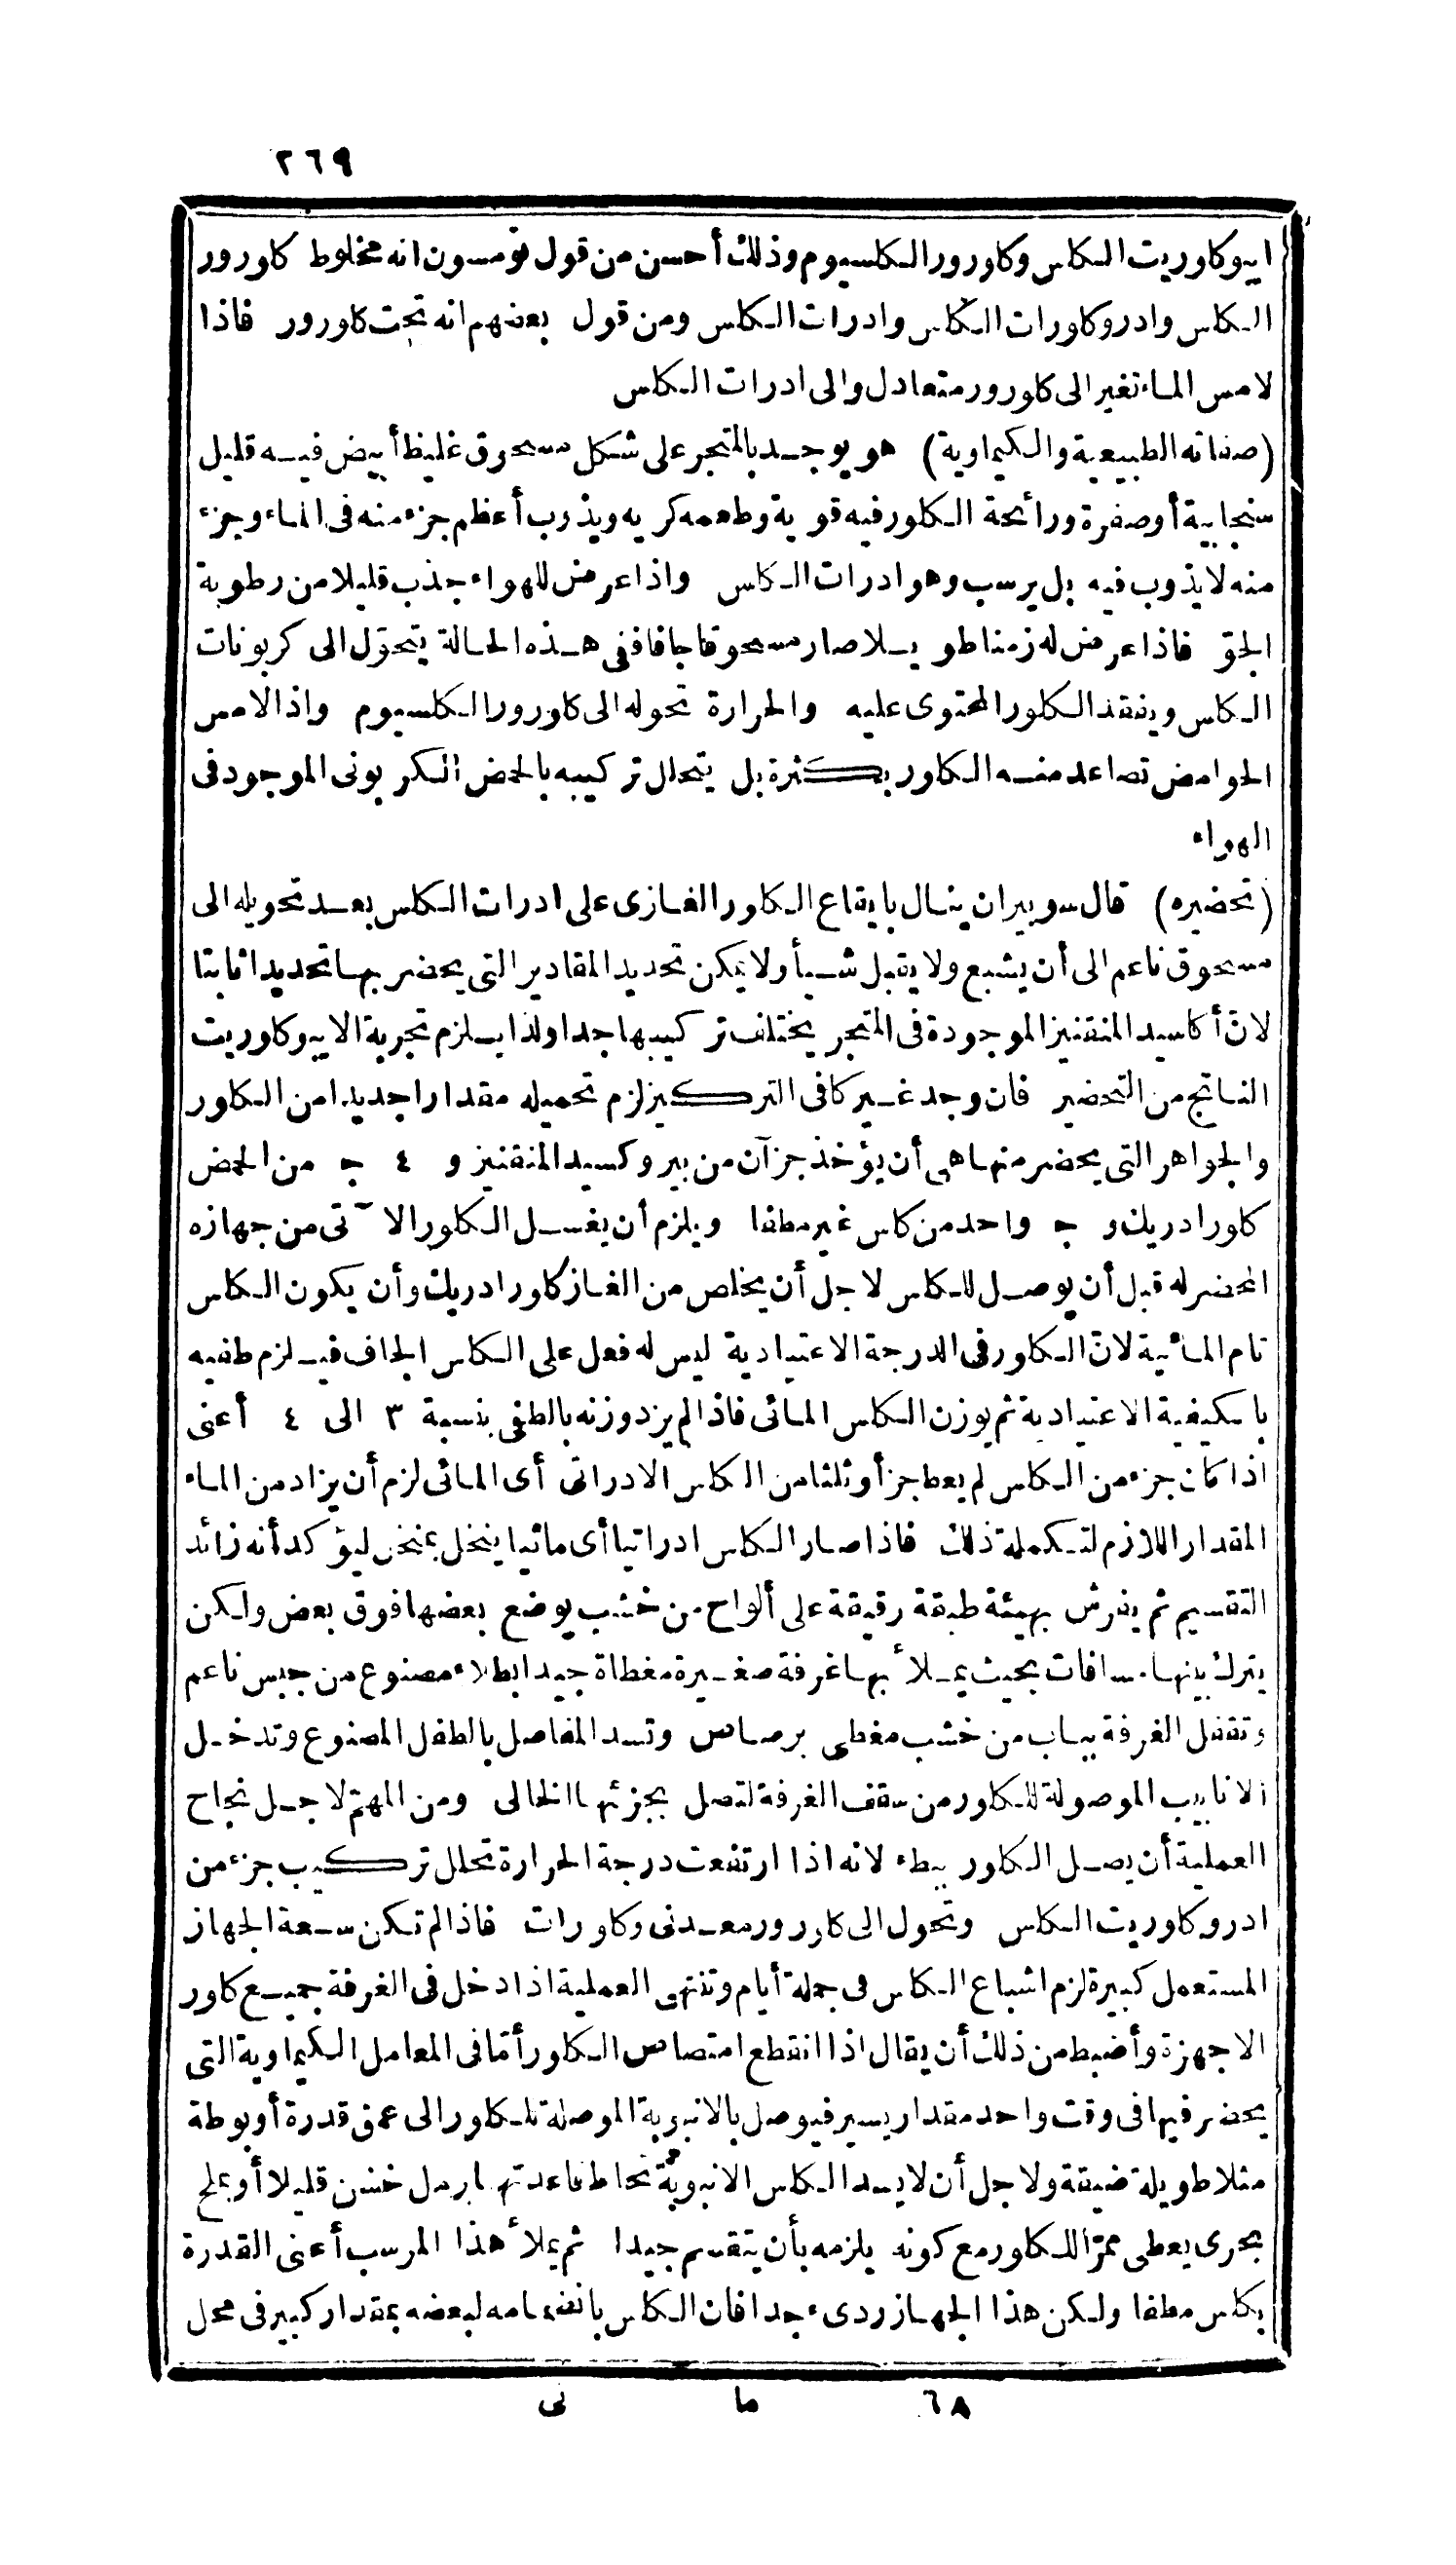 ٢٦٩
ايبوكلوريت الكلس وكلورور الكلسيوم وذلك أحسن من قول تومسون انه مخلوط كلورور
الكلس وادروكلورات الكلس وادرات الكلس ومن قول بعضهم انه تحت كلورور فاذا
لامس الماء تغير الى كلورور متعادل والى ادرات الكلس
(صفاته الطبيعية والكيماوية) هو يوجد بالمتجر على شكل مسحوق غليظ أبيض فيه قليل
سنجابية أو صفرة ورائحة الكلور فيه قوية وطعمه كريه ويذوب أعظم جزء منه فى الماء وجزء
منه لا يذوب فيه بل يرسب وهو ادرات الكلس واذا عرض للهواء جذب قليلا من رطوبة
الجوّ فاذا عرض له زمنا طويلا صار مسحوقا جافا ففى هذه الحالة يتحوّل الى كربونات
الكلس ويفقد الكلور المحتوى عليه والحرارة تحوله الى كلورور الكلسيوم واذا لامس
الحوامض تصاعد منه الكلور بكثرة بل يتحلل تركيبه بالحمض الكربونى الموجود فى
الهواء
(تحضيره) قال سوبيران ينال بايقاع الكلور الغازى على ادرات الكلس بعد تحويله الى
مسحوق ناعم الى أن يشبع ولا يقبل شيأ ولا يمكن تحديد المقادير التى يحضر بها تحديدا ثابتا
لانّ أكاسيد المنقنيز الموجودة فى المتجر يختلف تركيبها جدا ولذا يلزم تجربة الايبوكلوريت
الناتج من التحضير فان وجد غير كافى التركيز لزم تحميله مقدارا جديدا من الكلور
والجواهر التى يحضر منها هى أن يؤخذ جزآن من بيروكسيد المنقنيز و ٤ ج من الحمض
كلورادريك و ج واحد من كلس غير مطفا ويلزم أن يغسل الكلور الآتى من جهازه
المحضر له قبل أن يوصل للكلس لاجل أن يخلص من الغاز كلورادريك وأن يكون الكلس
تام المائية لانّ الكلور فى الدرجة الاعتيادية ليس له فعل على الكلس الجاف فيلزم طفيه
بالكيفية الاعتيادية ثم يوزن الكلس المائى فاذا لم يزد وزنه بالطفى بنسبة ٣ الى ٤ أعنى
اذا كان جزء من الكلس لم يعط جزأ وثلثا من الكلس الادراتى أى المائى لزم أن يزاد من الماء
المقدار اللازم لتكملة ذلك فاذا صار الكلس ادراتيا أى مائيا ينخل بمنخل ليؤكد أنه زائد
التقسيم ثم يفرش بهيئة طبقة رقيقة على ألواح من خشب يوضع بعضها فوق بعض ولكن
يترك بينها مسافات بحيث يملأ بها غرفة صغيرة مغطاة جيدا بطلاء مصنوع من جبس ناعم
وتقفل الغرفة بباب من خشب مغطى برصاص وتسد المفاصل بالطفل المصنوع وتدخل
الانابيب الموصولة للكلور من سقف الغرفة لتصل بجزئها الخالى ومن المهمّ لاجل نجاح
العملية أن يصل الكلور ببطء لانه اذا ارتفعت درجة الحرارة تحلل تركيب جزء من
ادروكلوريت الكلس وتحول الى كلورور معدنى وكلورات فاذا لم تكن سعة الجهاز
المستعمل كبيرة لزم اشباع الكلس فى جملة أيام وتنتهى العملية اذا دخل فى الغرفة جميع كلور
الاجهزة وأضبط من ذلك أن يقال اذا انقطع امتصاص الكلور أمّا فى المعامل الكيماوية التى
يحضر فيها فى وقت واحد مقدار يسير فيوصل بالانبوبة الموصلة للكلور الى عمق قدرة أو بوطة
مثلا طويلة ضيقة ولاجل أن لا يسد الكلس الانبوبة تحاط قاعدتها برمل خشن قليلا أو بملح
بحرى يعطى ممرّا للكلور مع كونه يلزمه بأن يتقسم جيدا ثم يملأ هذا المرسب أعنى القدرة
بكلس مطفا ولكن هذا الجهاز ردىء جدا فان الكلس بانضمامه لبعضه بمقدار كبير فى محل
٦٨ ما نى